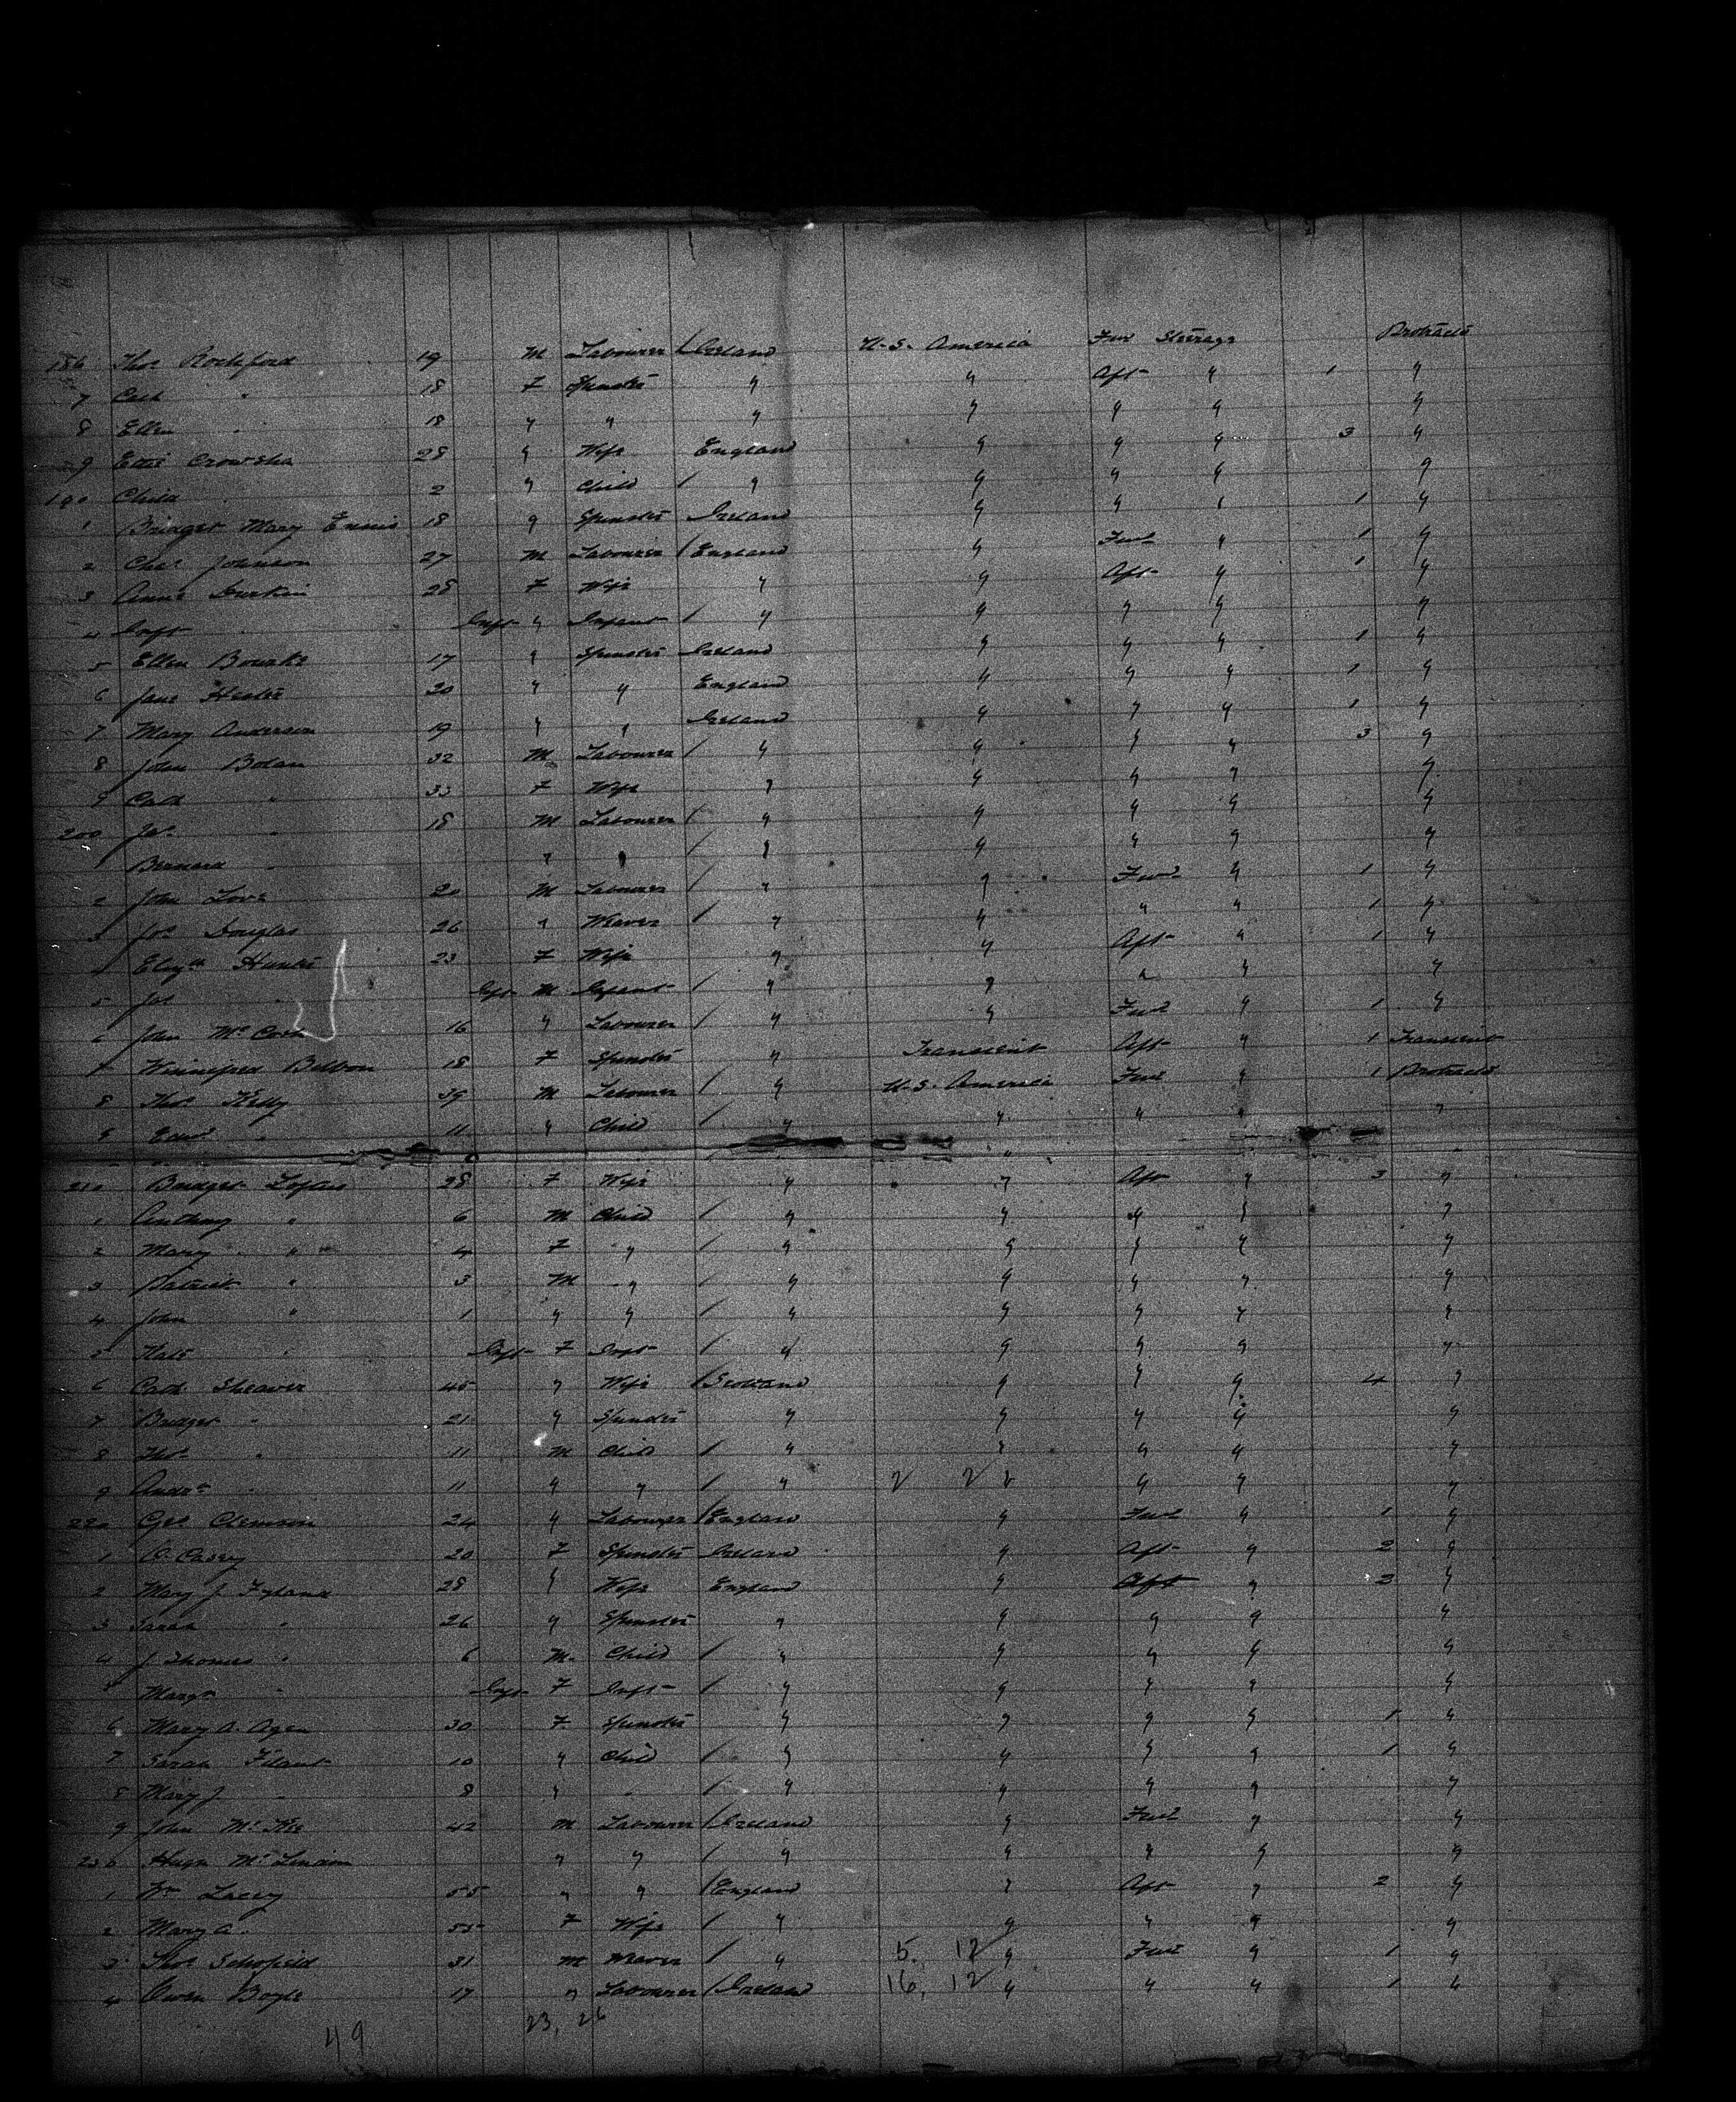 186 Thos Rochford 19 M Labourer / Ireland U.S. America Fwd Steerage Protracted
7 Cath " 18 F Spinster " " Aft " 1 "
8 Ellen " 18 " " " " " " "
9 Crowsha 28 " Wife England " " " 3 "
190 Child 2 " Child / " " " " "
1 Bridget Mary Ennis 18 " Spinster Ireland " " " 1 "
2 Chas Johnson 27 M Labourer / England " Fwd " 1 "
3 Anne Durkin 28 F Wife " " Aft " 1 "
4 Inft Inft " Infant / " " " " "
5 Ellen Bourke 17 " Spinster Ireland " " " 1 "
6 Jane 20 " " England " " " 1 "
7 Mary Anderson 19 " " Ireland " " " 1 "
8 John Bolan 32 M Labourer / " " " " 3 "
9 Cath " 33 F Wife " " " " "
200 Jas " 18 M Labourer / " " " " "
1 Bernard " " " / " " " " "
2 John Love 20 M Labourer / " " Fwd " 1 "
3 Jos Douglas 26 " Weaver / " " " " 1 "
4 Elizth Hunter 23 F Wife " " Aft " 1 "
5 Jos " Inft M Infant / " " " " "
6 John Mc 16 " Labourer / " " Fwd " 1 "
7 Winnifred 18 F Spinster " Transient Aft " 1 Transient
8 Thos Kelly 39 M Labourer / " U.S. America Fwd " 1 Protracted
9 Edwd " 11 " Child / " " " " "
210 Bridget Loftus 28 F Wife " " Aft " 3 "
1 Anthony " 6 M Child / " " " " "
2 Mary " 4 F " / " " " " "
3 Patrick " 3 M " / " " " " "
4 John " 1 " " / " " " " "
5 Kate " Inft F Inft / " " " " "
6 Cath Sheaver 45 " Wife / Scotland " " " 4 "
7 Bridget " 21 " Spinster " " " " "
8 Thos " 11 M Child / " " " " "
9 Andw " 11 " " / " " " " "
220 Geo Clemson 24 " Labourer / England " Fwd " 1 "
1 Casey 20 F Spinster Ireland " Aft " 2 "
2 Mary J 28 " Wife England " Aft " 2 "
3 Sarah " 26 " Spinster " " " " "
4 J Thomas " 6 M Child / " " " " "
5 Margt " Inft F Inft / " " " " "
6 Mary A. 30 F Spinster " " " " 1 "
7 Sarah 10 " Child / " " " " 1 "
8 Mary J " 8 " " / " " " " "
9 John McKee 42 M Labourer / Ireland " Fwd " "
230 Hugh Mc " " / " " " " "
1 Wm Lacey 55 " " / England " Aft " 2 "
2 Mary A. 55 F Wife / " " " " "
3 Thos Schofield 31 M Weaver / " 5. 12 " Fwd " 1 "
4 Owen Boyle 17 " Labourer / Ireland 16, 12 " " " 1 "
49 23, 26